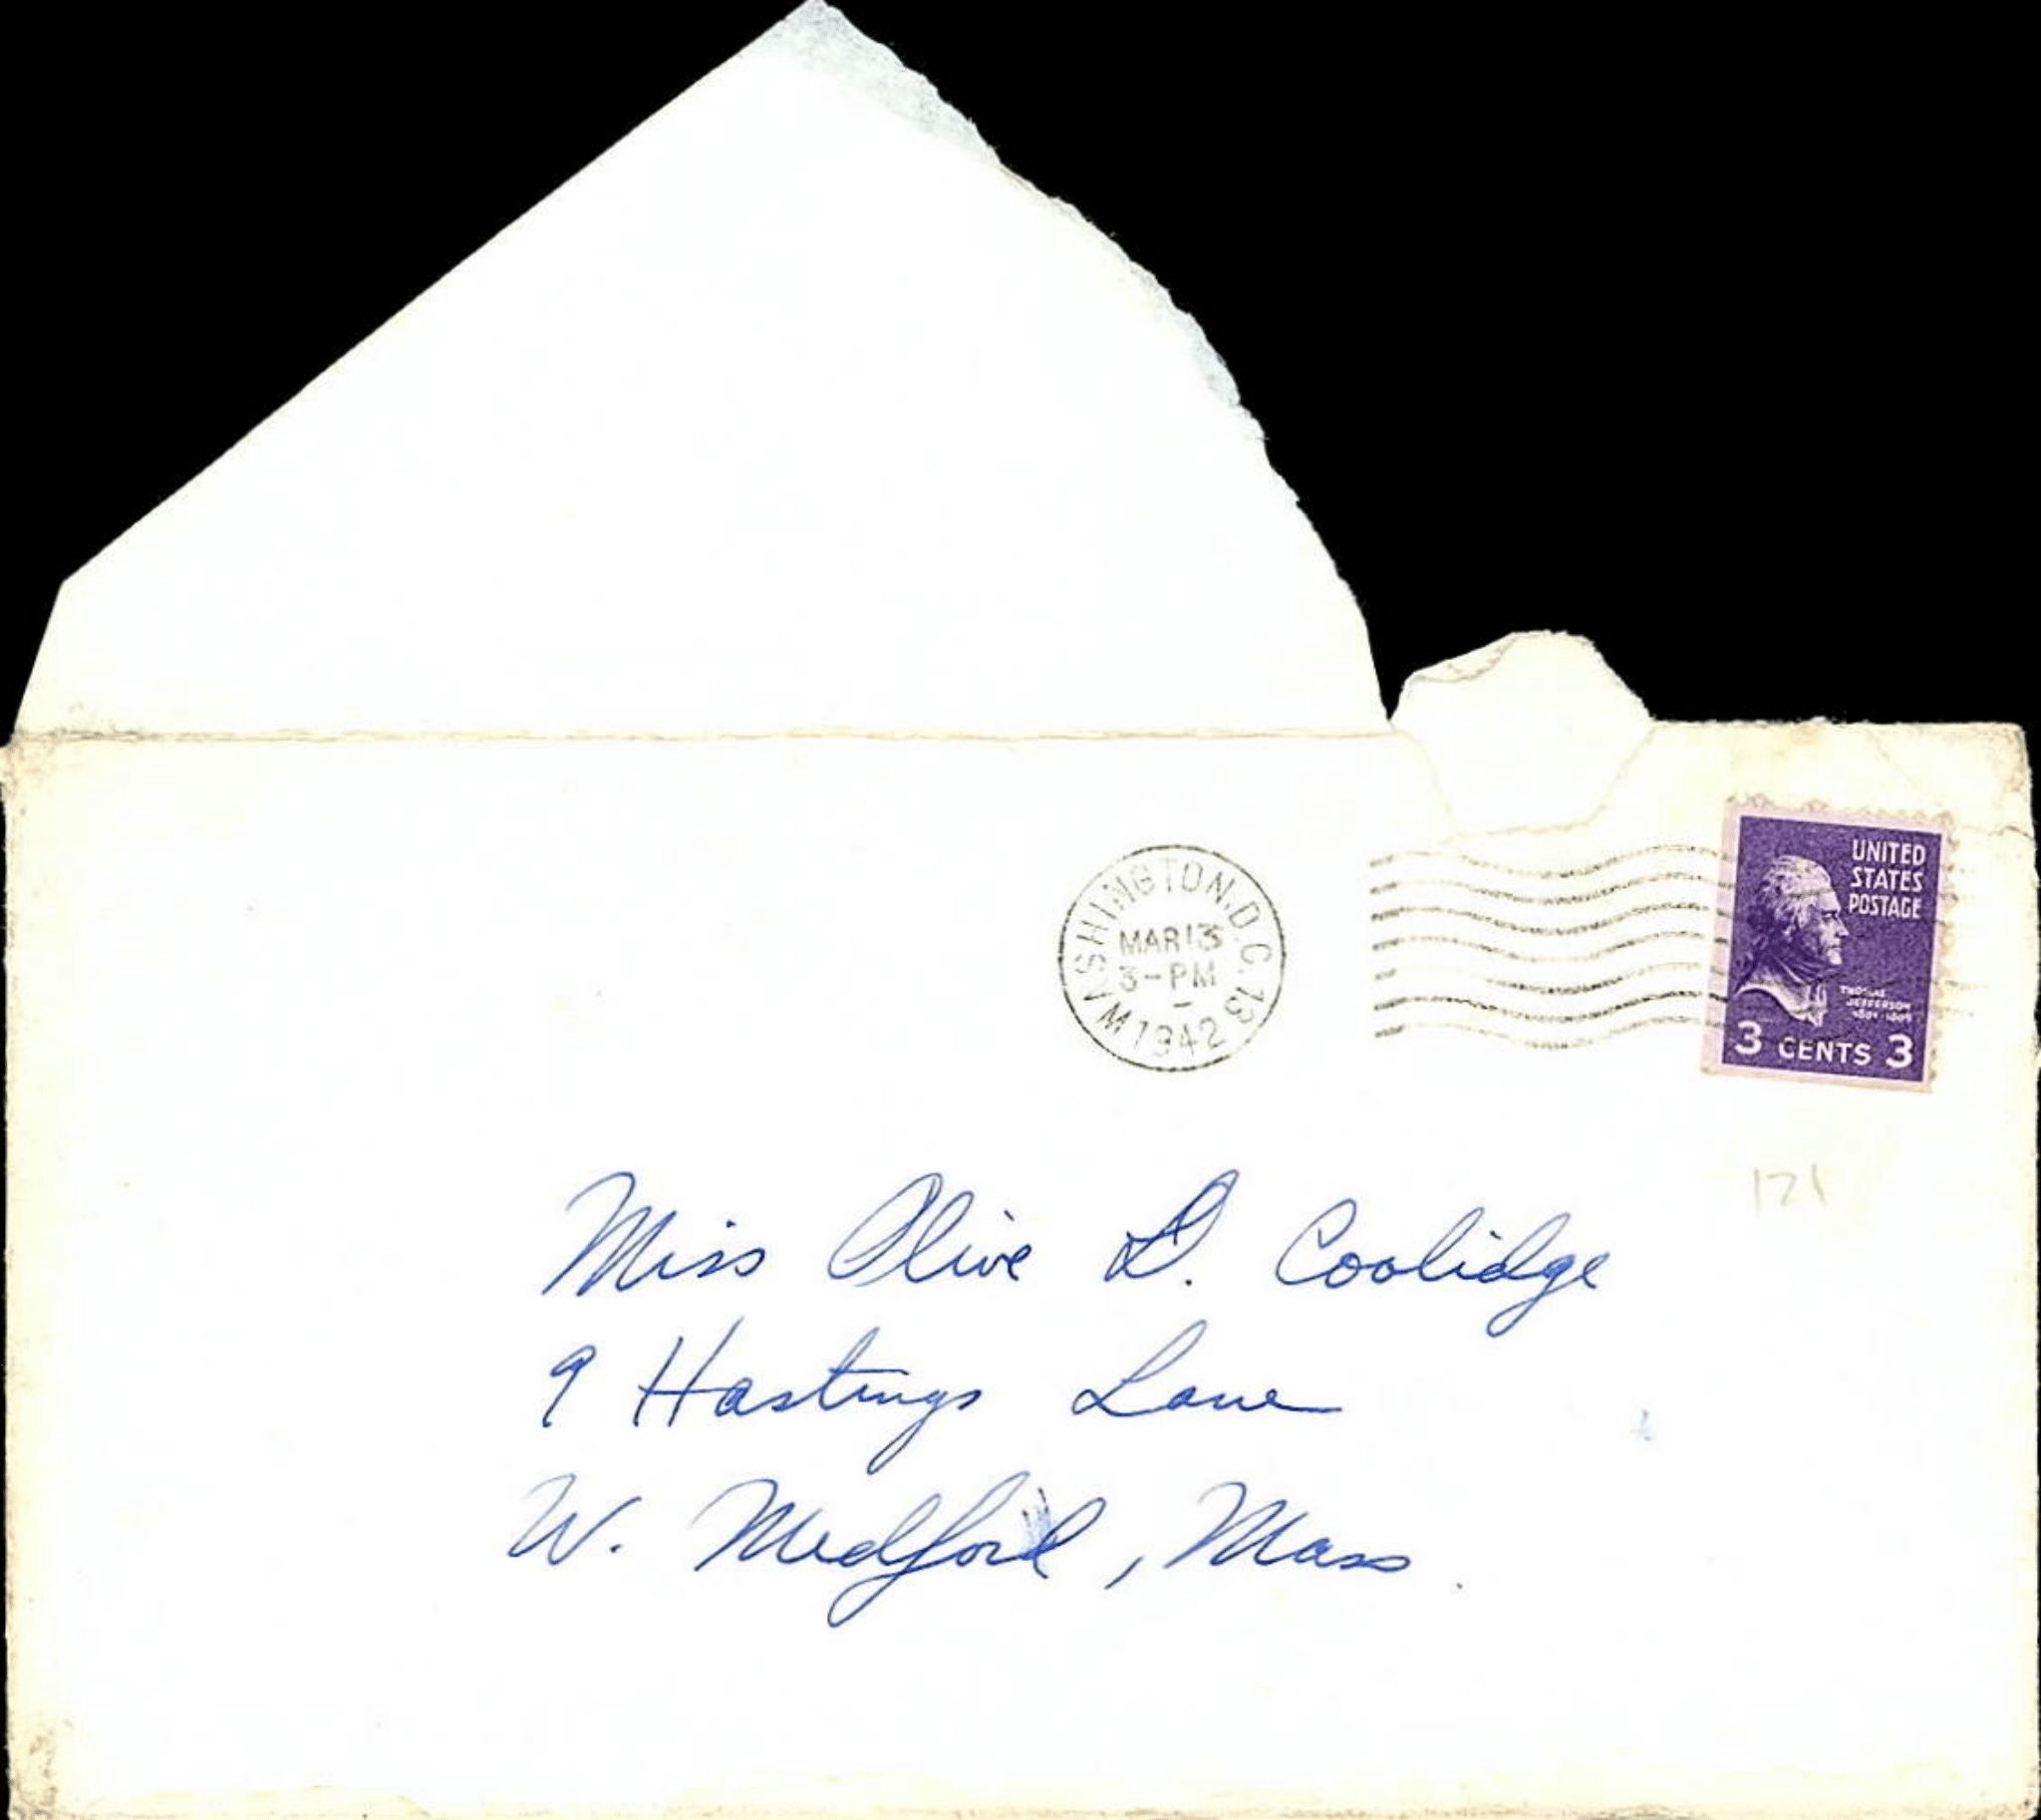 WASHINGTON, D.C. 13
MAR 13
3-PM
1942
UNITED
STATES
POSTAGE
THOMAS
JEFFERSON
1801-1809
3 CENTS 3
121
Miss Olive D. Coolidge
9 Hastings Lane
W. Medford, Mass.